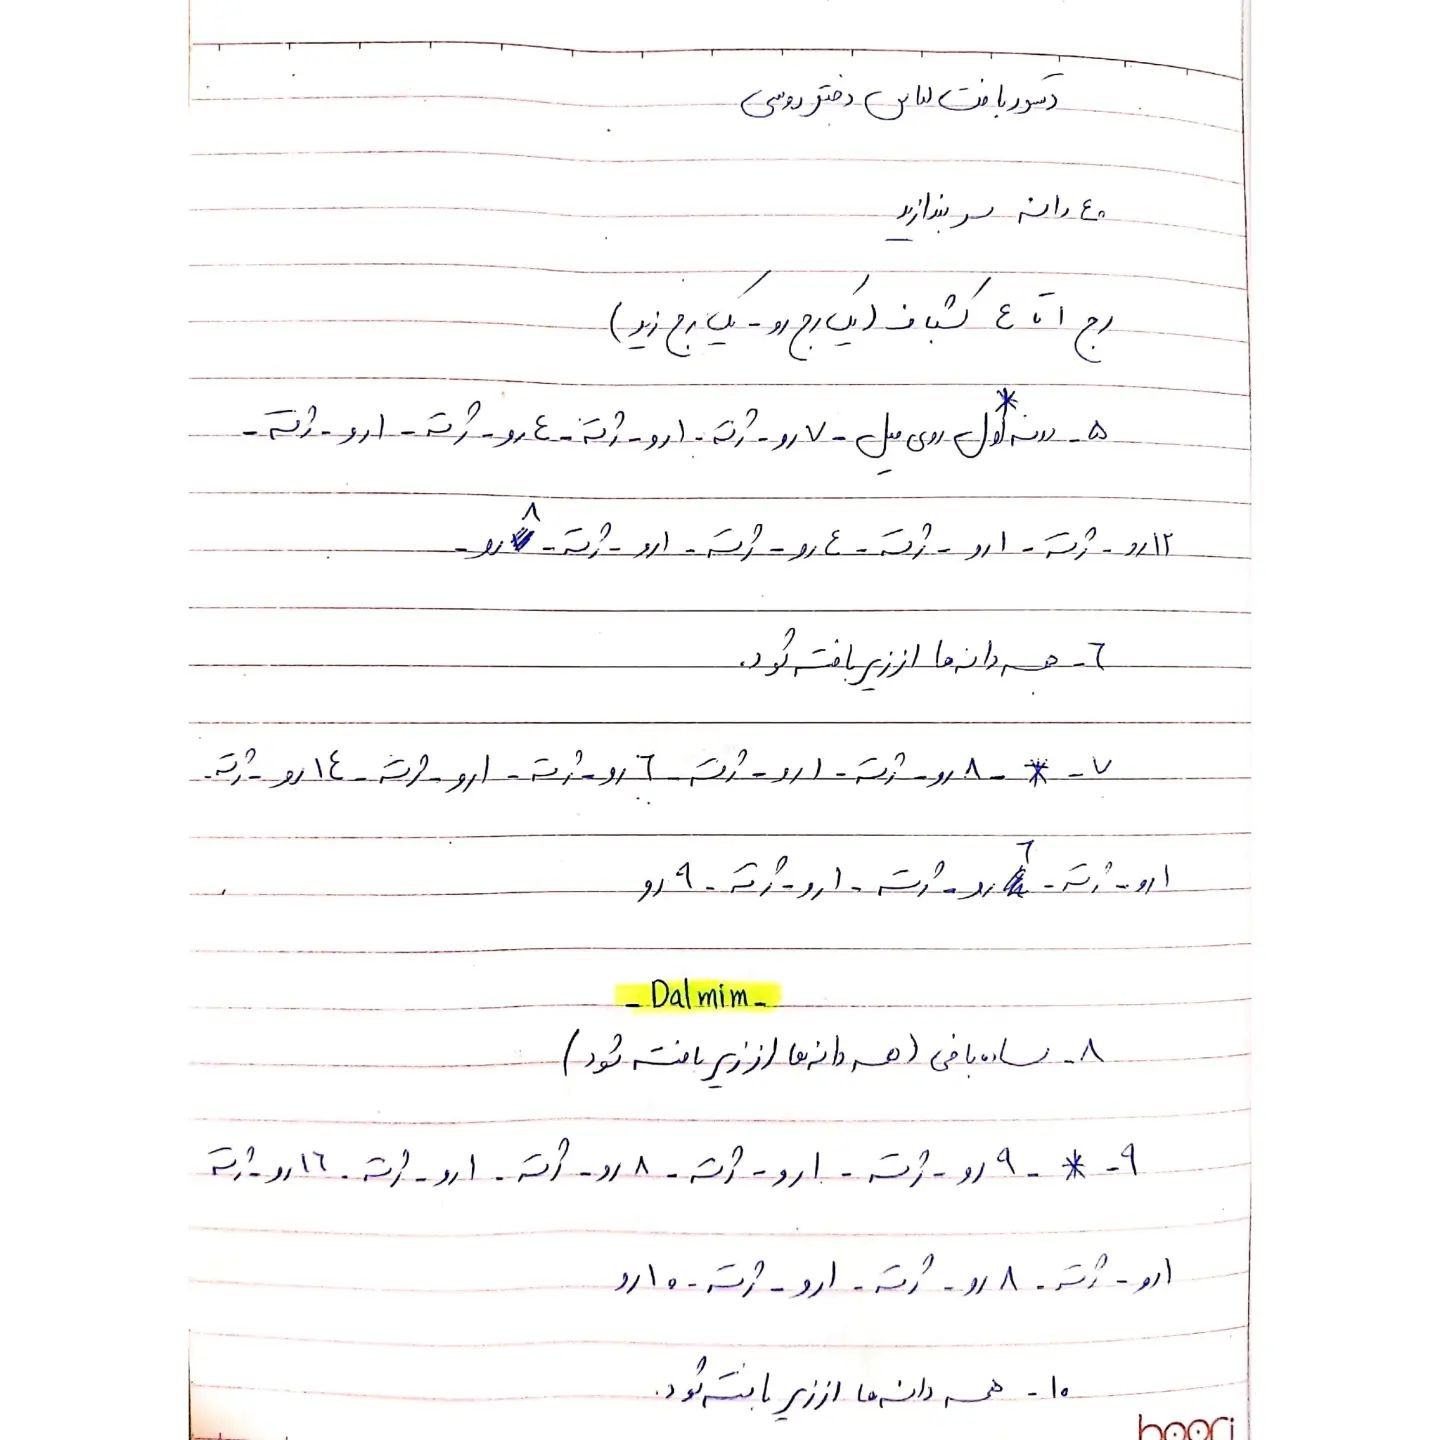 دستور بافت لباس دختر روسی
٤٠ دانه سر بندازید
رج ١ تا ٤ کشباف (یک رج رو - یک رج زیر)
٥- * دونه اول روی میل - ٧ رو - ژته - ١ رو - ژته - ٤ رو - ژته - ١ رو - ژته -
١٢ رو - ژته - ١ رو - ژته - ٤ رو - ژته - ١ رو - ژته - ٨ رو -
٦- همه دانه ها از زیر بافته شود.
٧- * - ٨ رو - ژته - ١ رو - ژته - ٦ رو - ژته - ١ رو - ژته - ١٤ رو - ژته -
١ رو - ژته - ٦ رو - ژته - ١ رو - ژته - ٩ رو
- Dal mim -
٨- ساده بافی (همه دانه ها از زیر بافته شود)
٩- * - ٩ رو - ژته - ١ رو - ژته - ٨ رو - ژته - ١ رو - ژته - ١٦ رو - ژته
١ رو - ژته - ٨ رو - ژته - ١ رو - ژته - ١٠ رو
١٠- همه دانه ها از زیر بافته شود.
hoori